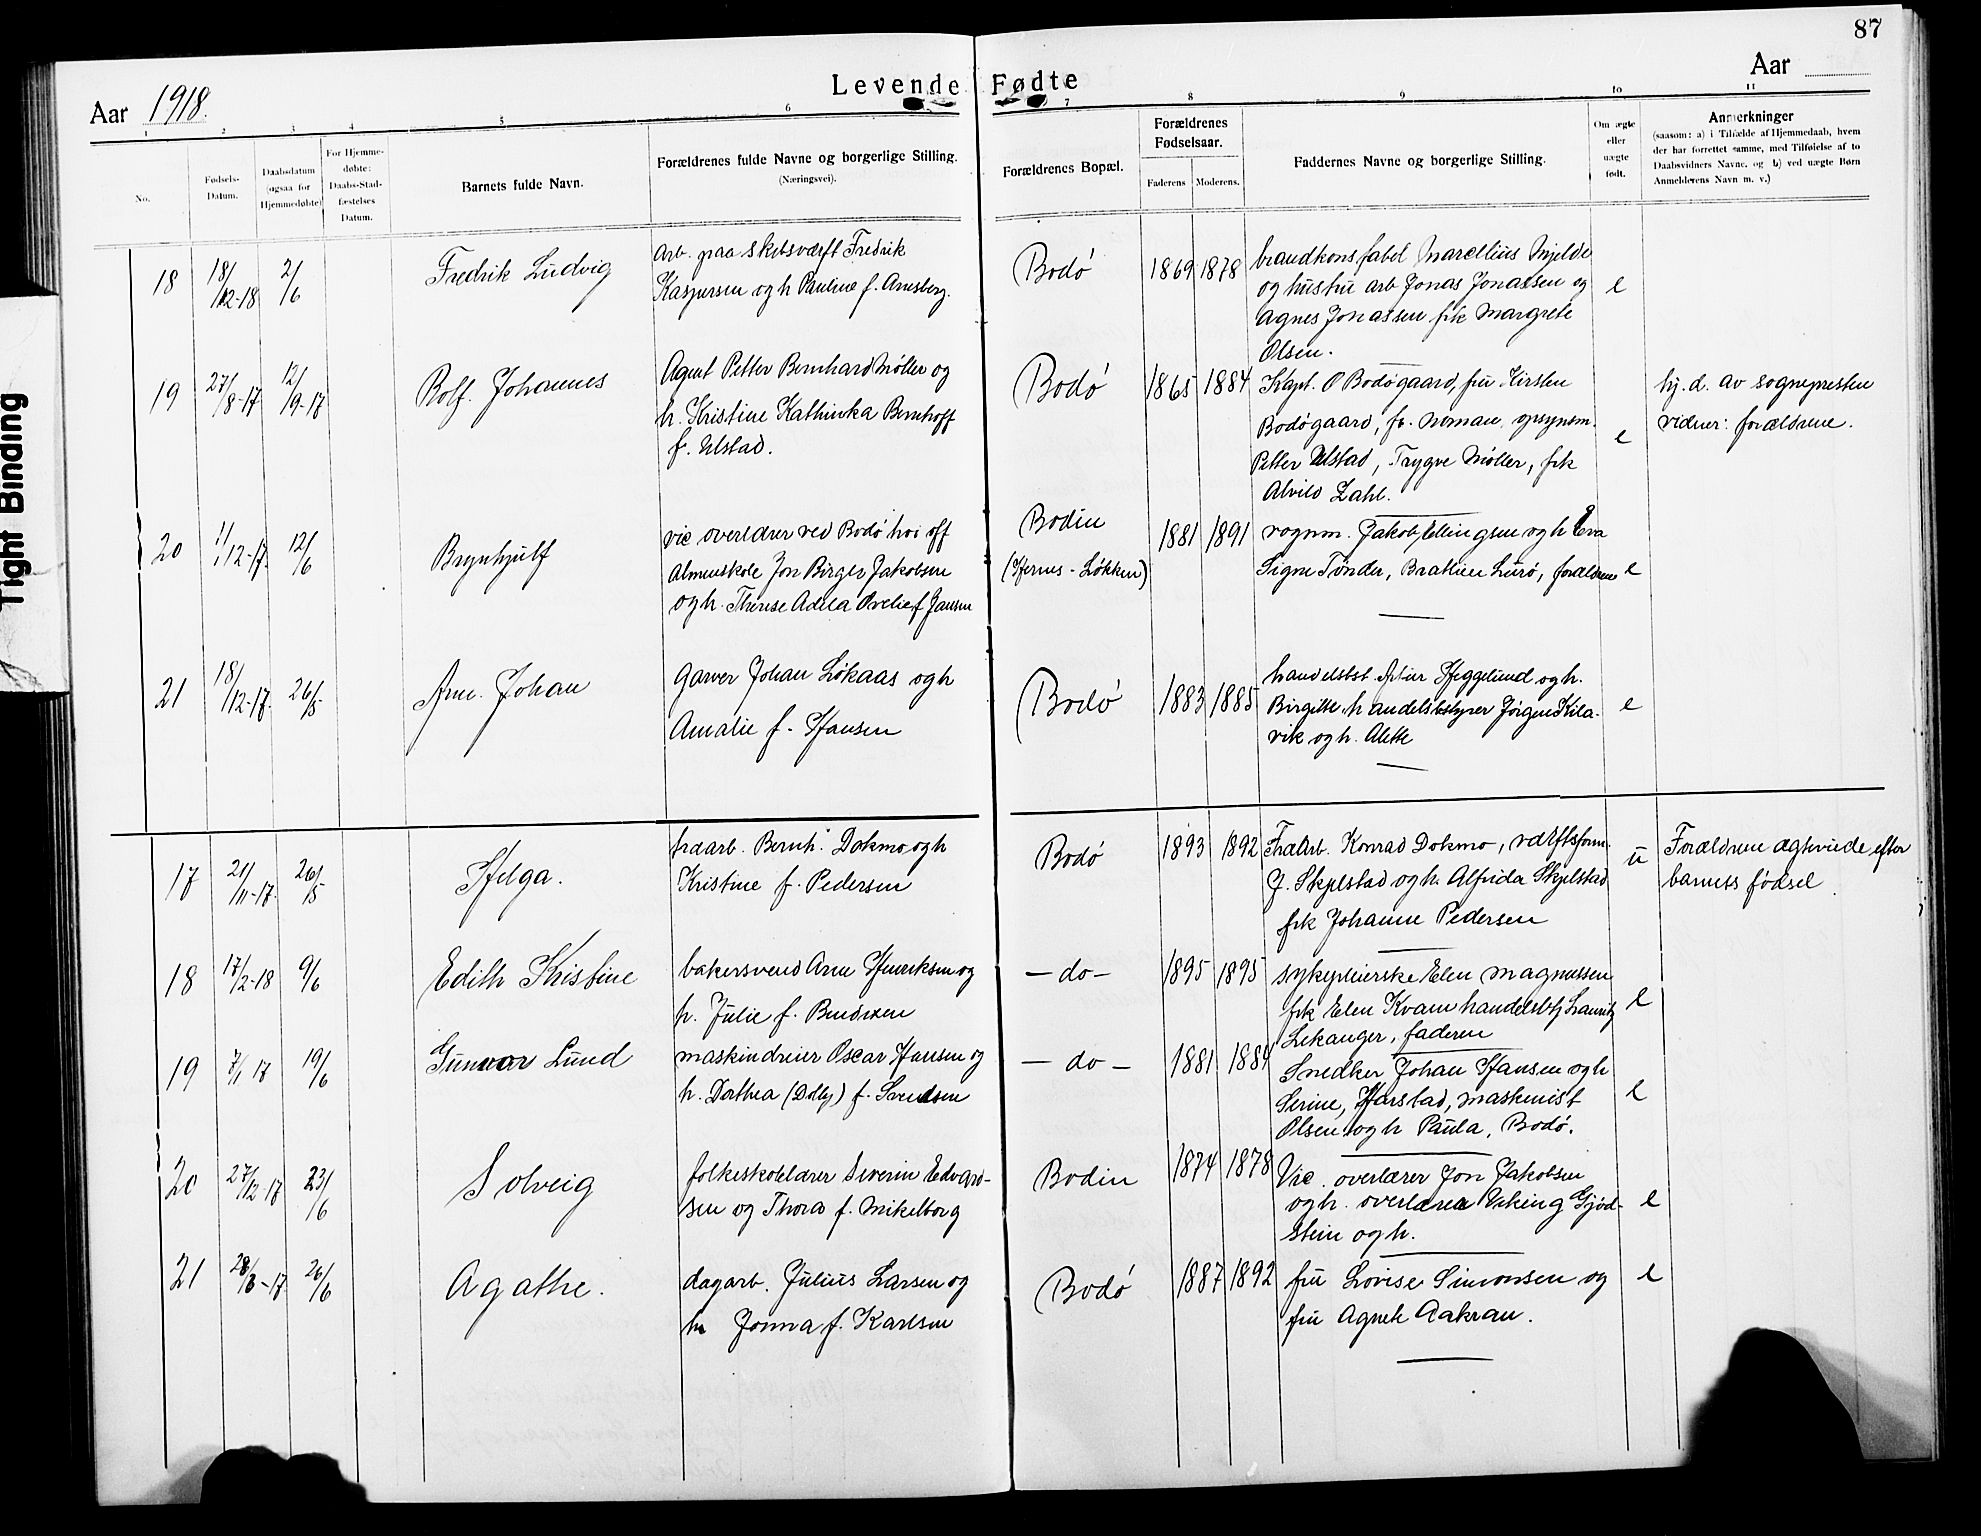 87
Levende Fødte
Aar 1918.
Aar
1 2 3 4 5 6 7 8 9 10 11
No.
Fødsels-
Datum.
Daabsdatum
(ogsaa for
Hjemmedøbte)
For Hjemme-
døbte:
Daabs-Stad-
fæstelses
Datum.
Barnets fulde Navn.
Forældrenes fulde Navne og borgerlige Stilling.
(Næringsvei).
Forældrenes Bopæl.
Forældrenes
Fødselsaar.
Faderens Moderens.
Faddernes Navne og borgerlige Stilling.
Om ægte
eller
uægte
født.
Anmerkninger
(saasom: a) i Tilfælde af Hjemmedaab, hvem
der har forrettet samme, med Tilføielse af to
Daabsvidners Navne, og b) ved uægte Børn
Anmelderens Navn m. v.)
18
18/12-18
2/6
Fredrik Ludvig
Arb. paa skibsværft Fredrik
Kaspersen og h Pauline f. Arnsberg.
Bodø
1869 1878
brandkonstabel Marcelius Mjelde
og hustru arb Jonas Jonassen og
Agnes Jonassen frk Margrete
Olsen.
e
19
27/8-17
12/9-17
Rolf. Johannes
Agent Petter Bernhard Møller og
h. Kristine Kathinka Bernhoff
f. Ulstad.
Bodø
1865 1884
Kapt. O Bodøgaard, fru Kirsten
Bodøgaard, fr. Noman, opsynsm.
Petter Ulstad, Trygve Møller, frk
Alvild Zahl.
e
hj. d. av sognepresten
vidner: forældrene.
20
11/12-17.
12/6
Brynhjulf
vic overlærer ved Bodø hoi off
Almenskole Jon Birger Jakobsen
og h. Therese Adela Ovelie f Jansen
Bodin
(Hernes-Løkken)
1881 1891
vognm. Jakob Ellingsen og h Eva
Signe Tønder, Bratlien Lurø, forældrene
e
21
18/12-17.
26/5
Arne. Johan
Garver Johan Løkaas og h
Amalie f. Hansen
Bodø
1883 1885
handelsbst. Peter Heggelund og h.
Birgitte, handelsbestyrer Jørgen Kila-
vik og h. Alette
e
17
21/11-17.
26/5
Helga.
fraarb. Bernh. Dokmo og h
Kristine f. Pedersen
Bodø
1893 1892
Fraarb. Konrad Dokmo, værftsform.
J. Skjelstad og h. Alfrida Skjelstad
frk Johanne Pedersen
u
Forældrene ægteviede efter
barnets fødsel
18
17/2-18
9/6
Edith Kristine
bakersvend Arne Henriksen og
h. Julie f. Bendixen
-do-
1895 1895
sykepleierske Elen Magnussen
frk Elen Kvam handelsbtj Lauritz
Lekanger, faderen
e
19
7/1 17
19/6
Gunnar Lund
maskindreier Oscar Hansen og
h. Dorthea (Dolly) f. Svendsen
- do -
1881 1884
Snedker Johan Hansen og h
Serine, Harstad, maskinist
Olsen og h Paula, Bodø.
e
20
27/12-17
23/6
Solveig
folkeskolelærer Severin Edvard-
sen og Thora f. Mikelborg
Bodin
1874 1878
Vic. overlærer Jon Jakobsen
og h. overlærer Viking Gjød-
stein og h.
e
21
28/8-17
26/6
Agathe.
dagarb. Julius Larsen og
h Jonna f. Karlsen
Bodø
1887 1892
fru Lovise Simonsen og
fru Agnete Aakran.
e
Tight Binding